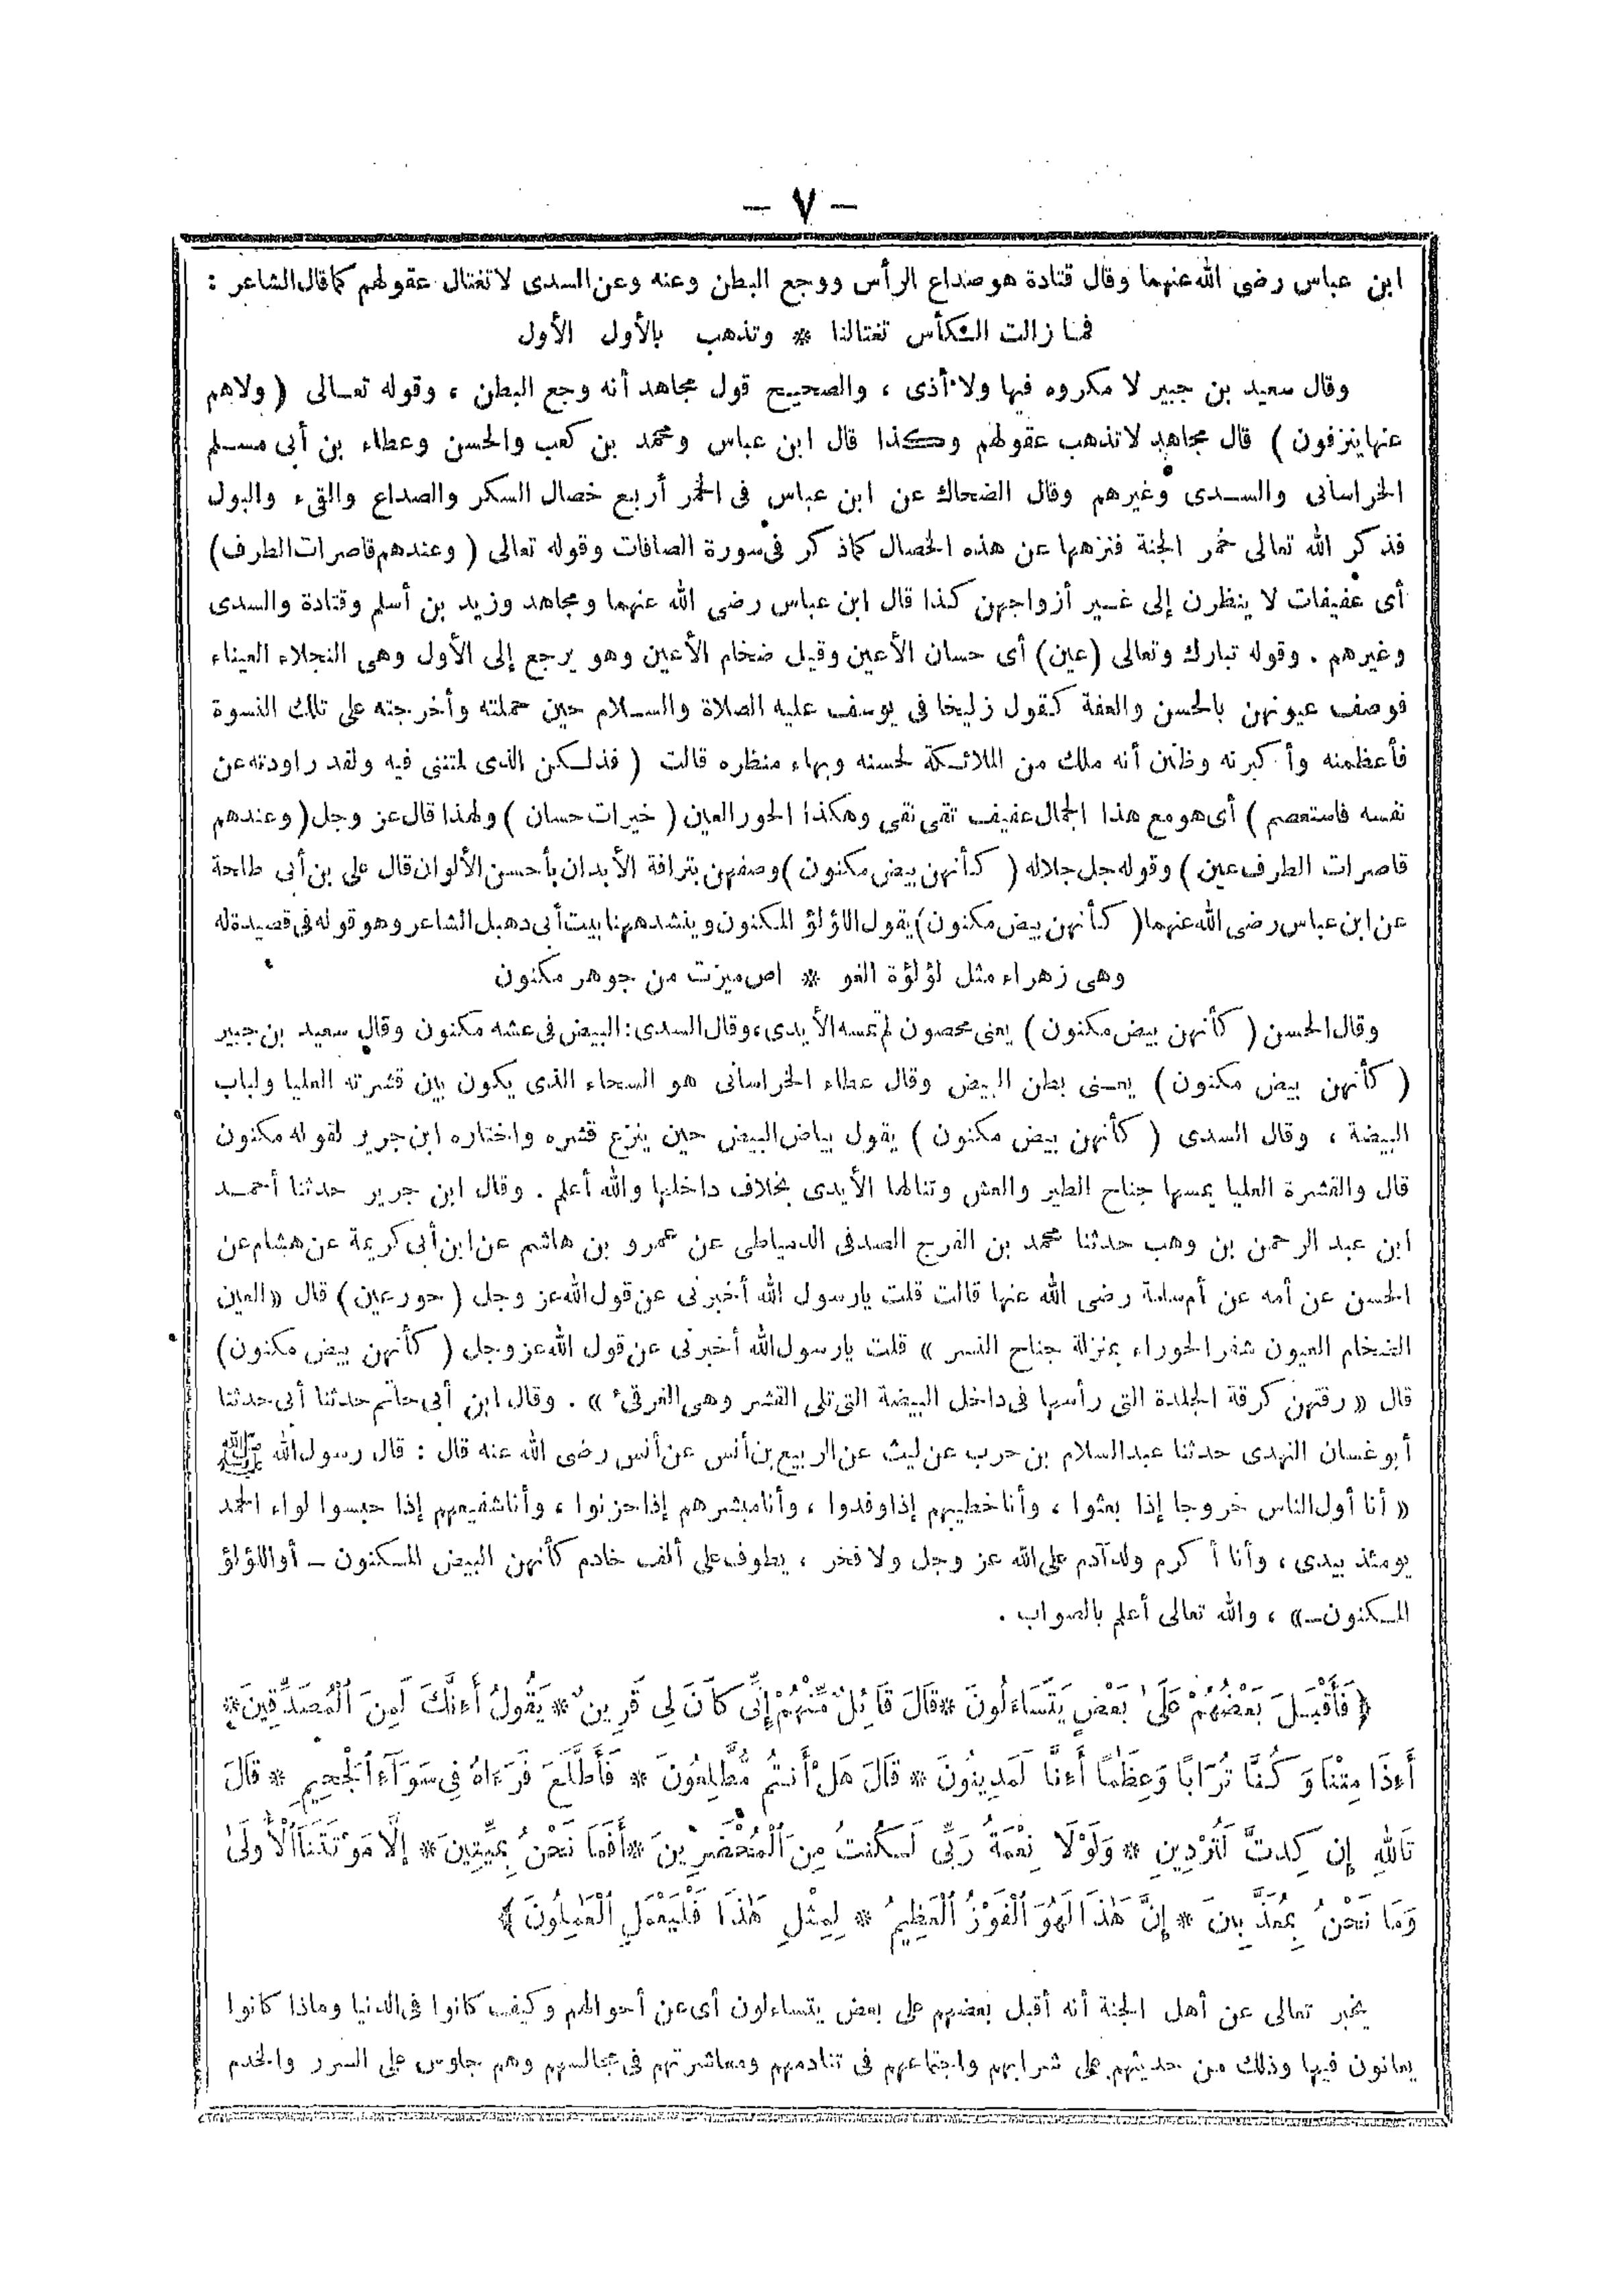 - ٧ -
ابن عباس رضى الله عنهما وقال قتادة هو صداع الرأس ووجع البطن وعنه وعن السدى لا تغتال عقولهم كما قال الشاعر :
فما زالت الكأس تغتالنا * وتذهب بالأول الأول
وقال سعيد بن جبير لا مكروه فيها ولا أذى ، والصحيح قول مجاهد أنه وجع البطن ، وقوله تعالى ( ولاهم
عنها ينزفون ) قال مجاهد لا تذهب عقولهم وكذا قال ابن عباس ومحمد بن كعب والحسن وعطاء بن أبى مسلم
الخراسانى والسدى وغيرهم وقال الضحاك عن ابن عباس فى الخمر أربع خصال السكر والصداع والقىء والبول
فذكر الله تعالى خمر الجنة فنزهها عن هذه الخصال كماذكر فى سورة الصافات وقوله تعالى ( وعندهم قاصرات الطرف)
أى عفيفات لا ينظرن إلى غير أزواجهن كذا قال ابن عباس رضى الله عنهما ومجاهد وزيد بن أسلم وقتادة والسدى
وغيرهم . وقوله تبارك وتعالى (عين) أى حسان الأعين وقيل ضخام الأعين وهو يرجع إلى الأول وهى النجلاء العيناء
فوصف عيونهن بالحسن والعفة كقول زليخا فى يوسف عليه الصلاة والسلام حين جملته وأخرجته على تلك النسوة
فأعظمنه وأكبرنه وظنن أنه ملك من الملائكة لحسنه وبهاء منظره قالت ( فذلكن الذى لمتننى فيه ولقد راودته عن
نفسه فاستعصم ) أى هو مع هذا الجمال عفيف تقى نقى وهكذا الحور العين ( خيرات حسان ) ولهذا قال عز وجل ( وعندهم
قاصرات الطرف عين ) وقوله جل جلاله ( كأنهن بيض مكنون ) وصفهن بترافة الأبدان بأحسن الألوان قال على بن أبى طلحة
عن ابن عباس رضى الله عنهما ( كأنهن بيض مكنون ) يقول اللؤلؤ المكنون وينشد ههنا بيت أبى دهبل الشاعر وهو قوله فى قصيدة له
وهى زهراء مثل لؤلؤة الغو * اص ميزت من جوهر مكنون
وقال الحسن ( كأنهن بيض مكنون ) يعنى محصون لم تمسه الأيدى ، وقال السدى : البيض فى عشه مكنون وقال سعيد بن جبير
( كأنهن بيض مكنون ) يعنى بطن البيض وقال عطاء الخراسانى هو السحاء الذى يكون بين قشرته العليا ولباب
البيضة ، وقال السدى ( كأنهن بيض مكنون ) يقول بياض البيض حين ينزع قشره واختاره ابن جرير لقوله مكنون
قال والقشرة العليا يمسها جناح الطير والعش وتنالها الأيدى بخلاف داخلها والله أعلم . وقال ابن جرير حدثنا أحمد
ابن عبد الرحمن بن وهب حدثنا محمد بن الفرج الصدفى الدمياطى عن عمرو بن هاشم عن ابن أبى كريمة عن هشام عن
الحسن عن أمه عن أم سلمة رضى الله عنها قالت قلت يارسول الله أخبرنى عن قول الله عز وجل ( حور عين ) قال « العين
الضخام العيون شفر الحوراء بمنزلة جناح النسر » قلت يارسول الله أخبرنى عن قول الله عز وجل ( كأنهن بيض مكنون )
قال « رقتهن كرقة الجلدة التى رأسها فى داخل البيضة التى تلى القشر وهى الغرقئ » . وقال ابن أبى حاتم حدثنا أبى حدثنا
أبو غسان النهدى حدثنا عبد السلام بن حرب عن ليث عن الربيع بن أنس عن أنس رضى الله عنه قال : قال رسول الله ﷺ
« أنا أول الناس خروجا إذا بعثوا ، وأنا خطيبهم إذا وفدوا ، وأنا مبشرهم إذا حزنوا ، وأنا شفيعهم إذا حبسوا لواء الحمد
يومئذ بيدى ، وأنا أكرم ولد آدم على الله عز وجل ولا فخر ، يطوف على ألف خادم كأنهن البيض المكنون – أو اللؤلؤ
المكنون – » ، والله تعالى أعلم بالصواب .
﴿ فَأَقْبَلَ بَعْضُهُمْ عَلَىٰ بَعْضٍ يَتَسَاءَلُونَ * قَالَ قَائِلٌ مِّنْهُمْ إِنِّى كَانَ لِى قَرِينٌ * يَقُولُ أَءِنَّكَ لَمِنَ ٱلْمُصَدِّقِينَ *
أَءِذَا مِتْنَا وَكُنَّا تُرَابًا وَعِظَٰمًا أَءِنَّا لَمَدِينُونَ * قَالَ هَلْ أَنتُم مُّطَّلِعُونَ * فَٱطَّلَعَ فَرَءَاهُ فِى سَوَآءِ ٱلْجَحِيمِ * قَالَ
تَٱللَّهِ إِن كِدتَّ لَتُرْدِينِ * وَلَوْلَا نِعْمَةُ رَبِّى لَكُنتُ مِنَ ٱلْمُحْضَرِينَ * أَفَمَا نَحْنُ بِمَيِّتِينَ * إِلَّا مَوْتَتَنَا ٱلْأُولَىٰ
وَمَا نَحْنُ بِمُعَذَّبِينَ * إِنَّ هَٰذَا لَهُوَ ٱلْفَوْزُ ٱلْعَظِيمُ * لِمِثْلِ هَٰذَا فَلْيَعْمَلِ ٱلْعَٰمِلُونَ ﴾
يخبر تعالى عن أهل الجنة أنه أقبل بعضهم على بعض يتساءلون أى عن أحوالهم وكيف كانوا فى الدنيا وماذا كانوا
يعانون فيها وذلك من حديثهم على شرابهم واجتماعهم فى تنادمهم ومعاشرتهم فى مجالسهم وهم جلوس على السرر والخدم